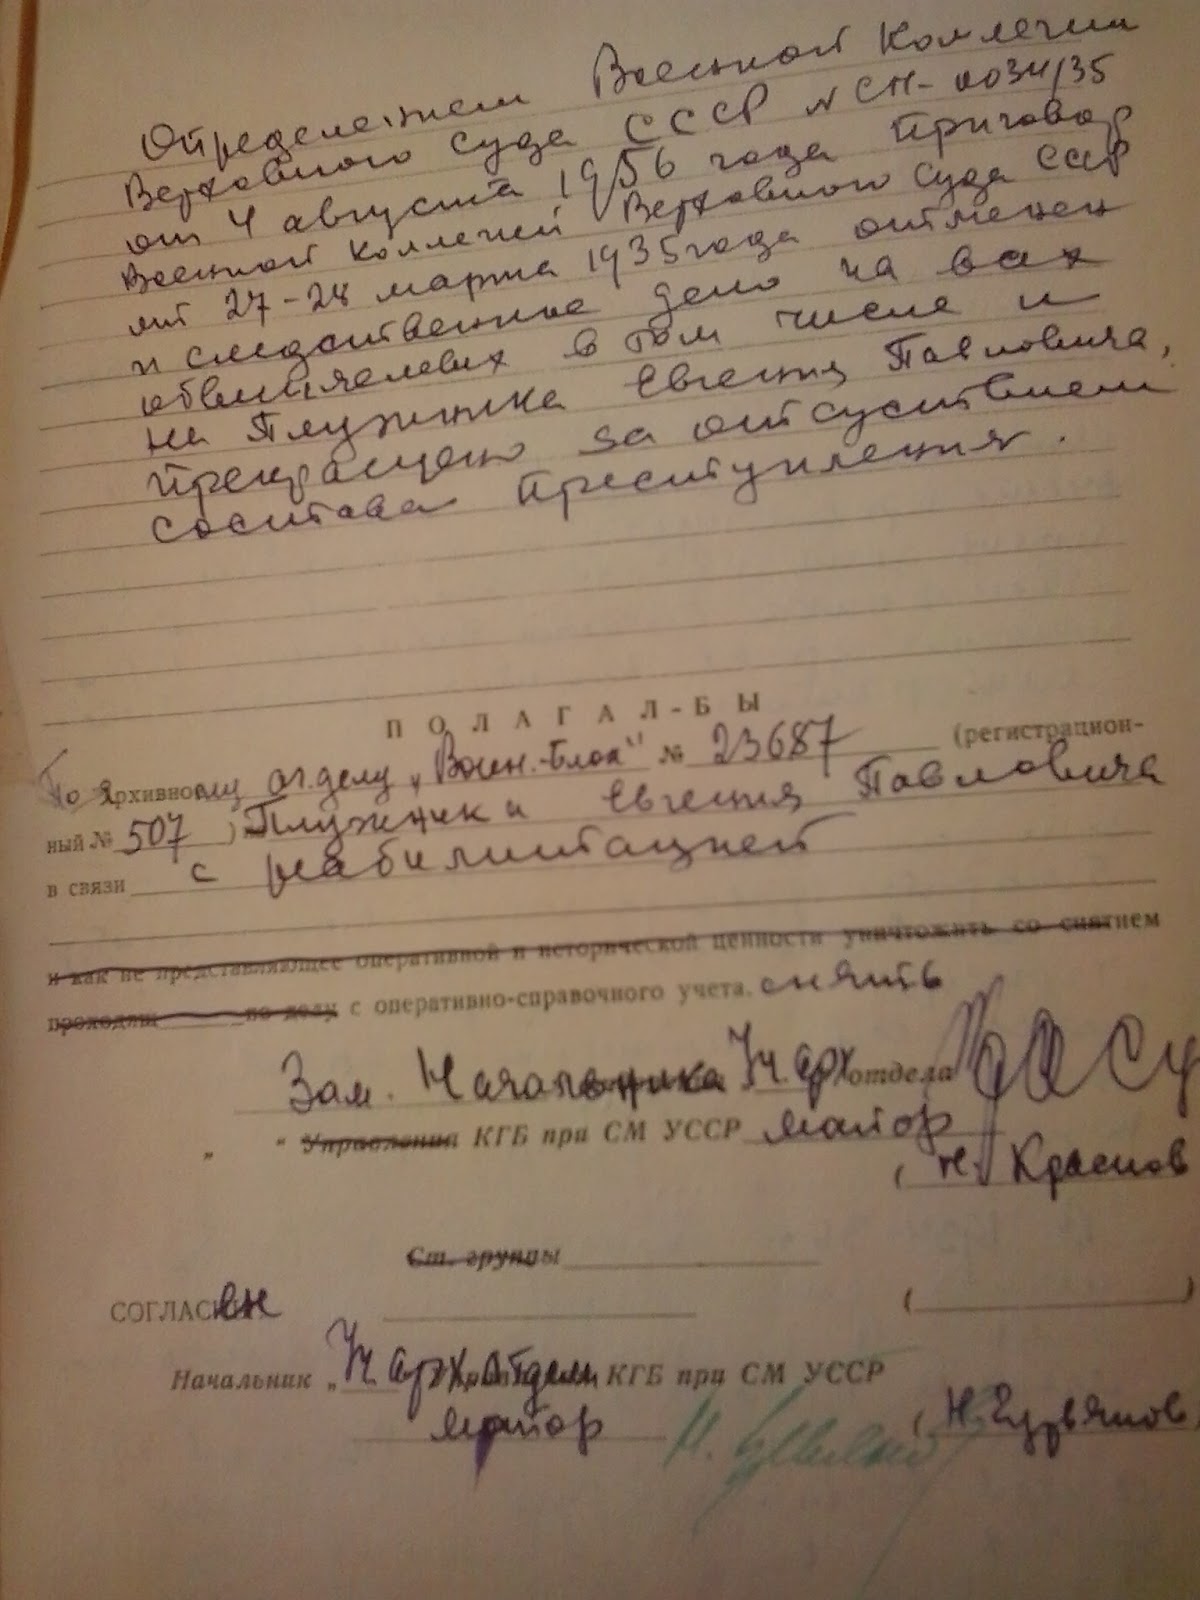 Определением Военной Коллегии
Верховного Суда СССР № СП-0034/35
от 4 августа 1956 года приговор
Военной Коллегией Верховного Суда СССР
от 27-28 марта 1935 года отменен
и следственное дело на всех
обвиняемых в том числе и
на Плужника Евгения Павловича,
прекращено за отсутствием
состава преступления.
ПОЛАГАЛ-БЫ
По архивному отделу № 23687 (регистрацион-
ный № 507) Плужника Евгения Павловича
в связи с реабилитацией
и как не представляющее оперативной и исторической ценности уничтожить со снятием
проходящ по делу с оперативно-справочного учета. снять
Зам. Начальника Уч. арх отдела
" " Управления КГБ при СМ УССР майор
( Н. Краснов
Ст. группы
СОГЛАСЕН ( )
Начальник " Уч. арх. отдела КГБ при СМ УССР
майор ( Н.